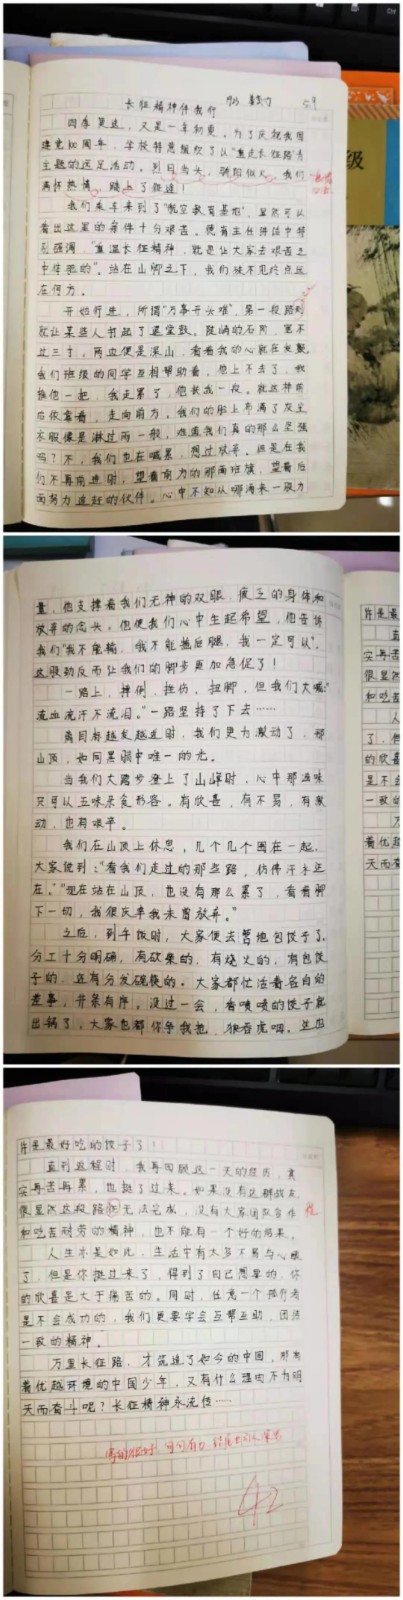 长征精神伴我行
59
四季更迭，又是一年初夏。为了庆祝我国
建党100周年，学校特意组织了以“重走长征路”为
主题的远足活动。烈日当头，骄阳似火，我们
满怀热情，踏上了征途！
我们乘车来到了“航空教育基地”，显然可以
看出这里的条件十分艰苦。德育主任讲话中特
别强调，“重温长征精神，就是让大家去艰苦之
中体验的”。站在山脚之下，我们望不见终点远
在何方。
开始行进，所谓“万事开头难”，第一段路时
就让某些人打起了退堂鼓，陡峭的石阶，宽不
过三寸，两边便是深山，看着我的心就在发颤。
我们班级的同学互相帮助着，他上不去了，我
推他一把，我走累了，他扶我一段。就这样前
后依靠着，走向前方。我们的脸上布满了灰尘
衣服像是淋过雨一般，难道我们真的那么坚强
吗？不，我们也在喊累，想过放弃。但是在我
们不再前进时，望着前方的那面班旗，望着后
面努力追赶的伙伴。心中不知从哪涌来一股力
量，他支撑着我们无神的双眼，疲乏的身体和
放弃的念头。他使我们心中生起希望，他告诉
我们“我不座输，我不能拖后腿，我一定可以”。
这股劲反而让我们的脚步更加急促了！
一路上，摔倒，挫伤，扭脚，但我们大喊：“
流血流汗不流泪。”一路坚持了下去……
离目标越发越近时，我们更为激动了，那
山顶，如同黑暗中唯一的光。
当我们大踏步登上了山峰时，心中那滋味
只可以五味杂瓮形容。有欣喜，有不易，有激
动，也有艰辛。
我们在山顶上休息，几个几个围在一起。
大家说到：“看我们走过的那些路，仿佛汗水还
在。”“现在站在山顶，也没有那么累了，看着脚
下一切，我很庆幸我未曾放弃。”
之后，到午饭时，大家便去营地包饺子了。
分工十分明确，有砍柴的，有烧火的，有包饺
子的，还有分发碗筷的。大家都忙活着各自的
差事，井条有序。没过一会，香喷喷的饺子就
出锅了，大家也都你争我抢，狼吞虎咽。这也
许是最好吃的饺子了！
直到返程时，我再回顾这一天的经历，其
实再苦再累，也挺了过来。如果没有这群战友
很显然这段路程无法完成，没有大家团队合作
和吃苦耐劳的精神，也不能有一个好的结果。
人生亦是如此，生活中有太多不易与心酸
了，但是你挺过来了，得到了自己想要的，你
的欣喜是大于痛苦的。同时，任意一个独行者
是不会成功的，我们更要学会互帮互助，团结
一致的精神。
万里长征路，才筑造了如今的中国，那有
着优越环境的中国少年，又有什么理由不为明
天而奋斗呢？长征精神永流传……
42